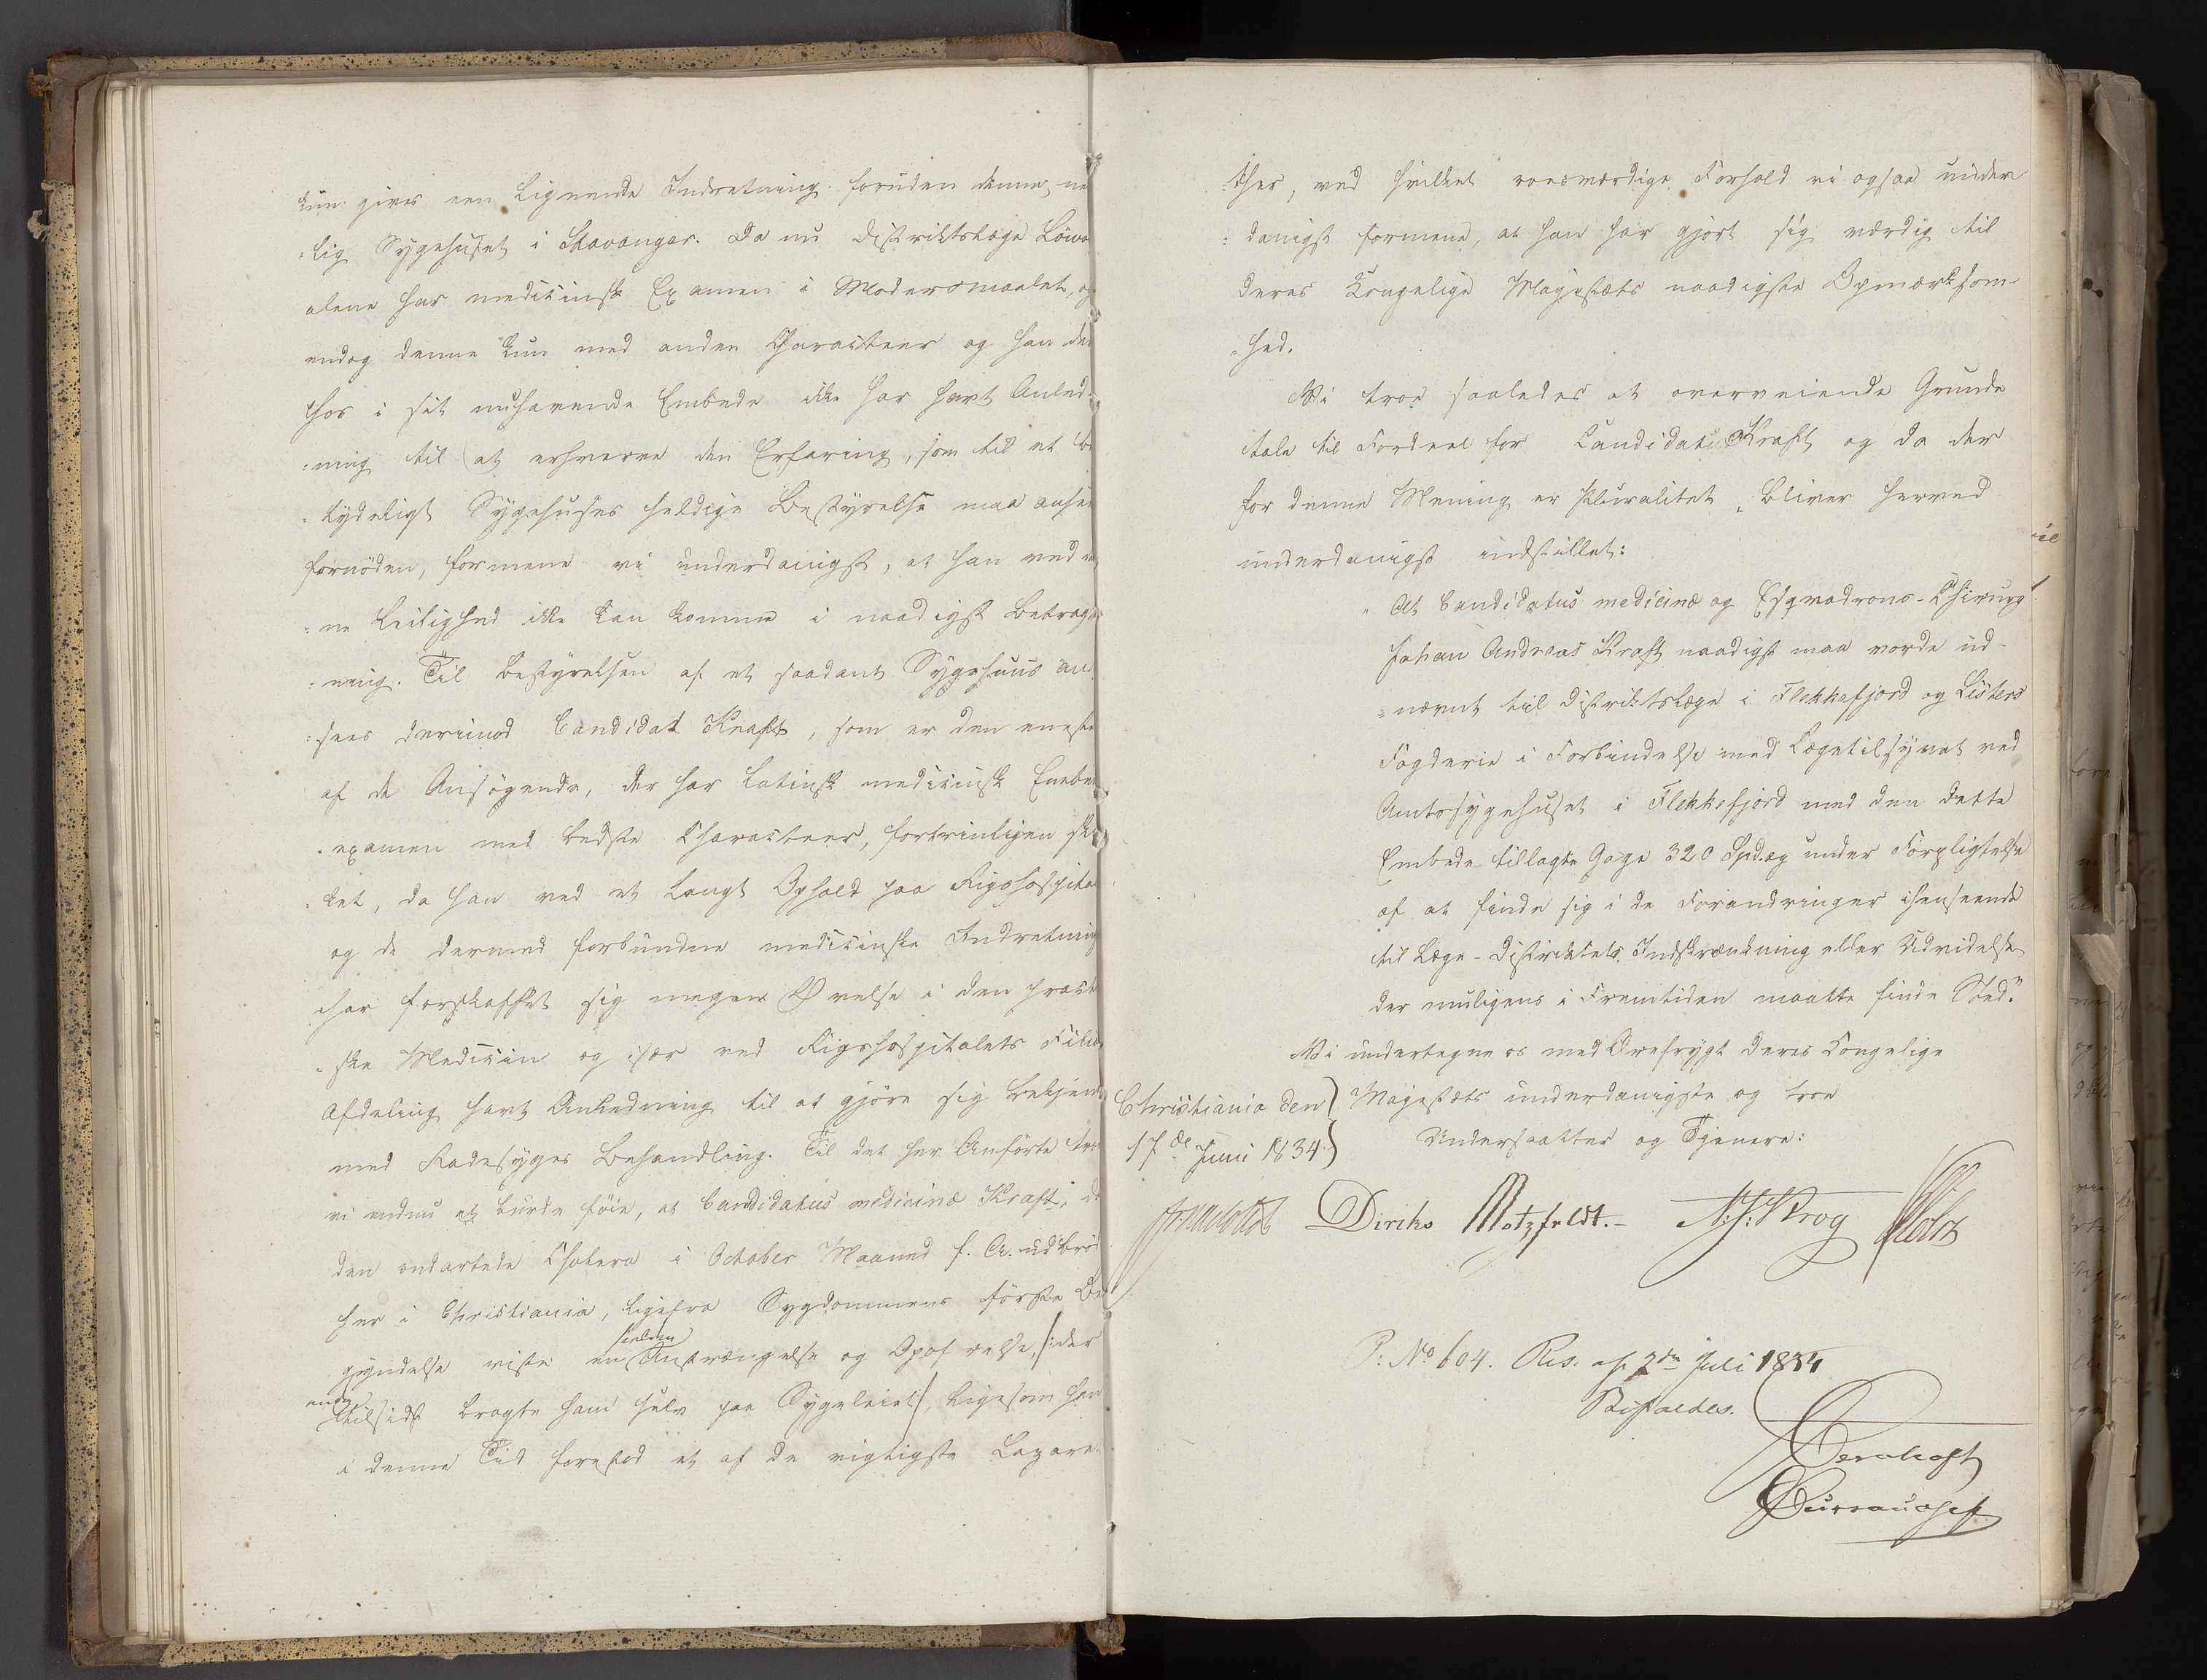 kun gives een lignende Indretning foruden denne, nem
-lig Sygehuset i Stavanger. Da nu Distriktslæge Löwo
alene har medicinsk Examen i Modersmaalet, og
endog denne kun med anden Charakteer og han der
hos i sit nuhavende Embede ikke har havt Anled-
-ning til at erhverve den Erfaring, som til et be
-tydeligt Sygehuses heldige Bestyrelse maa ansees
fornöden, formene vi underdanigst, at han ved den
-ne Leilighed ikke kan komme i naadigst Betragt-
-ning. Til Bestyrelsen af et saadant Sygehuus an
-sees derimod Candidat Kraft, som er den eneste
af de Ansögende, der har latinsk medicinsk Embeds
-examen med bedste Charakteer, fortrinligen skik
-ket, da han ved et langt Ophold paa Rigshospital
og de dermed forbundne medicinske Indretning
har forskaffet sig megen Övelse i den prakti
-ske Medicin og især ved Rigshospitalets Filial
Afdeling havt Anledning til at gjöre sig bekjendt
med Radesyges Behandling. Til det her Anförte tro
vi endnu at burde föie, at Candidatus medicinæ Kraft, da
den ondartede Cholera i October Maaned f. A. udbröd
her i Christiania, ligefra Sygdommens förste Be
gyndelse viste en sielden Anstrængelse og Opofrelse, /:der
endog tilsidst bragte ham selv paa Sygeleiet:/, ligesom han
i denne Tid forestod et af de vigtigste Lazare-
-ther, ved hvilket roesværdige Forhold vi ogsaa under
-danigst formene, at han har gjort sig værdig til
Deres Kongelige Majestæts naadigste Opmærksom-
-hed.
Vi troe saaledes at overveiende Grunde
tale til Fordeel for Candidat Kraft og da der
for denne Mening er Pluralitet, bliver herved
underdanigst indstillet:
"At Candidatus medicinæ og Esqvadrons-Chirurg
Johan Andreas Kraft naadigst maa vorde ud-
-nævnt til Distriktslæge i Flekkefjord og Listers
Fogderie i Forbindelse med Lægetilsynet ved
Amtssygehuset i Flekkefjord med den dette
Embede tillagte Gage 320 Spd. og under Forpligtelse
af at finde sig i de Forandringer ihenseende
til Læge-Distriktets Indskrænkning eller Udvidelse
der muligens i Fremtiden maatte finde Sted."
Vi undertegne os med Ærefrygt Deres Kongelige
Christiania den) Majestæts underdanigste og troe
17de Juni 1834) Undersaatter og Tjenere:
Diriks Motzfeldt.- N: J: Krog Holst
P: No 604. Res. af 2den Juli 1834
Bifaldes.
Bernhoft
Bureauchef